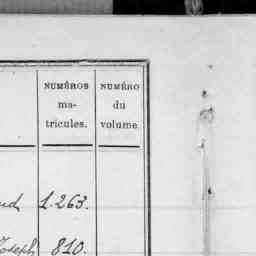 NUMÉROS
ma-
tricules.
NUMÉRO
du
volume
1.263.
Joseph 810.